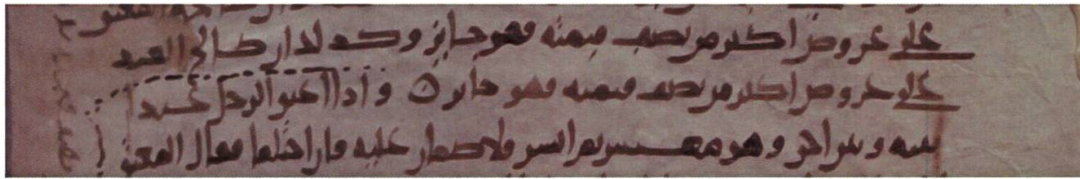 على عروض اكثر من نصف قيمته فهو جايز وكذلك ان صالح العبد
على عروض اكثر من نصف قيمته فهو جايز ○ واذا اعتق الرجل عبدا
بينه وبين اخر وهو معسر يوم اعتق فلا ضمان عليه فان اختلفا فقال المعتق